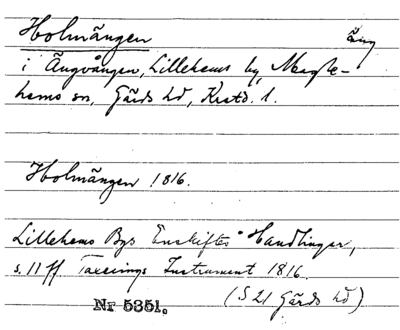 Holmängen äng
i Ängvången, Lillehems by, Magle-
hems sn, Gärds hd, Krstd. l.
Holmängen 1816.
Lillehems Bys Enskiftes Handlingar,
s. 11 ff. Taxerings Instrument 1816.
Nr 5351. (S 21 Gärds hd)